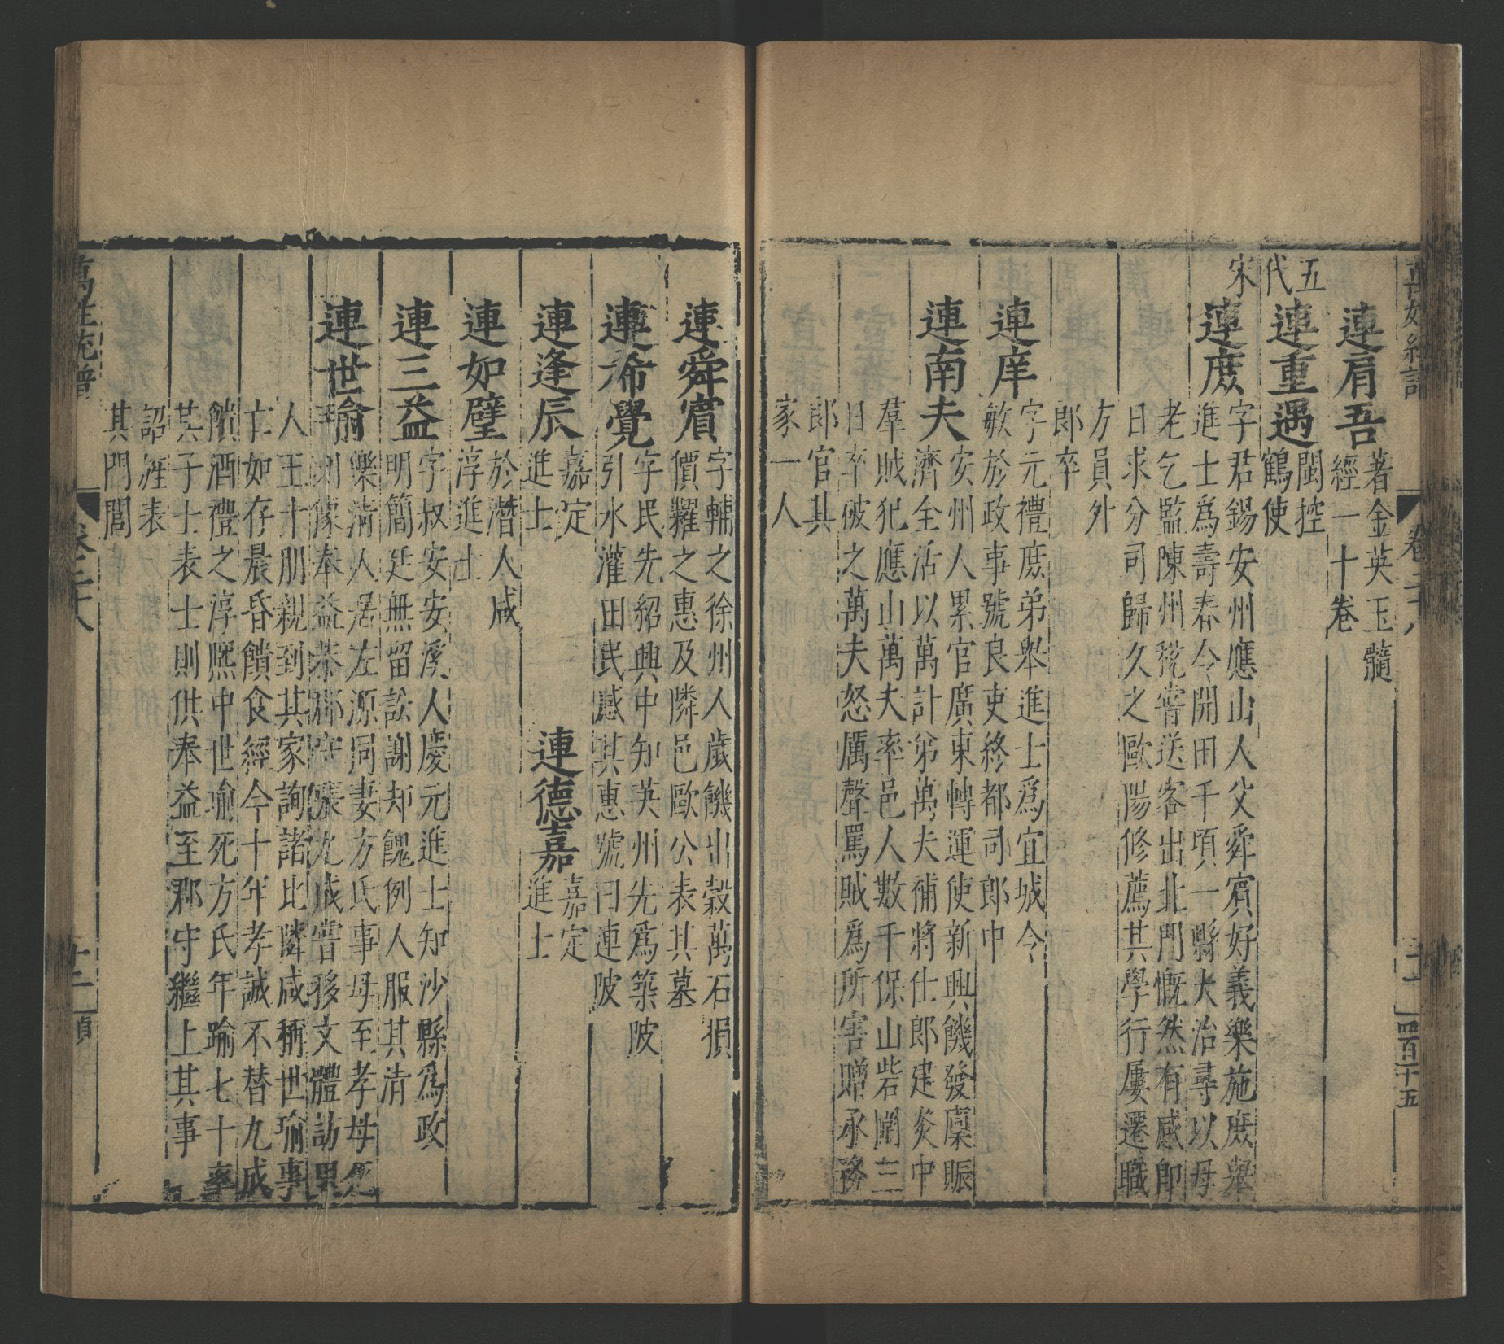 連肩吾
著金英玉髓
經一十卷
五
代
連重遇
閩控
鶴使
宋
連庶
字君錫安州應山人父舜賓好義樂施庶舉
進士爲壽春令開田千頃一縣大治尋以母
老乞監陳州稅嘗送客出北門慨然有感即
日求分司歸久之歐陽修薦其學行屢遷職
方員外
郎卒
連庠
字元禮庶弟舉進士爲宜城令
敏於政事號良吏終都司郎中
連南夫
安州人累官廣東轉運使新興饑發廩賑
濟全活以萬計弟萬夫補將仕郎建炎中
羣賊犯應山萬夫率邑人數千保山砦圍三
日卒破之萬夫怒厲聲罵賊爲所害贈承務
郎官其
家一人
卷
四百十五
連舜賓
字輔之徐州人歲饑出穀萬石損
價糶之惠及隣邑歐公表其墓
連希覺
字民先紹興中知英州先爲築陂
引水灌田民感其惠號曰連陂
連逢辰
嘉定
進士
連德嘉
嘉定
進士
連如璧
於潛人咸
淳進士
連三益
字叔安安溪人慶元進士知沙縣爲政
明簡廷無留訟謝却餽例人服其清
連世瑜
樂清人居左源同妻方氏事母至孝母死
刻像奉益恭郡守張九成嘗移文體訪里
人王十朋親到其家詢諸比隣咸稱世瑜事
亡如存晨昏饋食經今十年孝誠不替九成
饋酒禮之淳熙中世瑜死方氏年踰七十率
其子士表士則供奉益至郡守繼上其事
詔旌表
其門閭
萬姓統譜